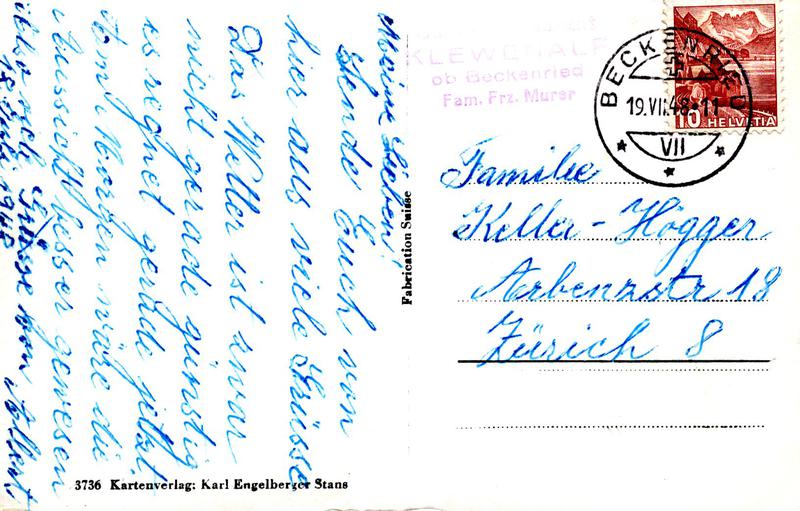 Meine Lieben!
Sende Euch von
hier aus viele Grüsse
Das Wetter ist zwar
nicht gerade günstig
es regnet gerade jetzt.
Am Morgen wäre die
Aussicht besser gewesen
Grüsse von Albert
18 Juli 1948
Fabrication Suisse
3736 Kartenverlag: Karl Engelberger Stans
KLEWENALP
ob Beckenried
Fam. Frz. Murer
BECKENRIED
19.VII.48-11
VII
10 HELVETIA
Familie
Keller-Högger
Arbenzstr 18
Zürich 8